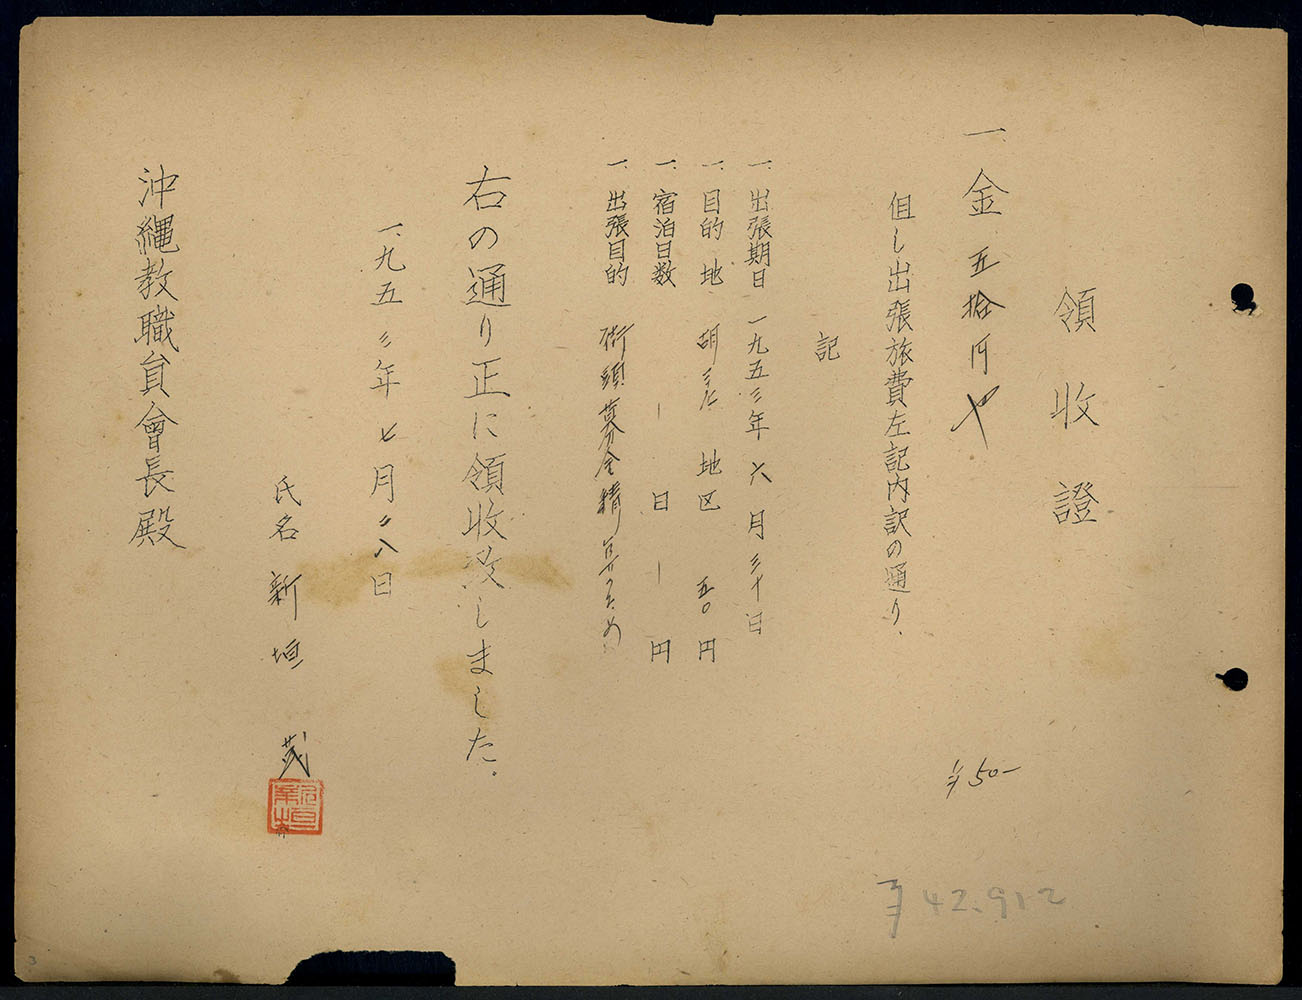 領收證
一、金 五拾円也
但し出張旅費左記内訳の通り、
記
一、出張期日 一九五三年 六月 三十日
一、目的地 胡差 地区 五〇円
一、宿泊日数 ー 日 ー 円
一、出張目的 街頭募金精算のため
右の通り正に領收致しました。
一、九五三年 七月 二八日
氏名 新垣 茂
沖縄教職員會長殿
50-
42.912
3